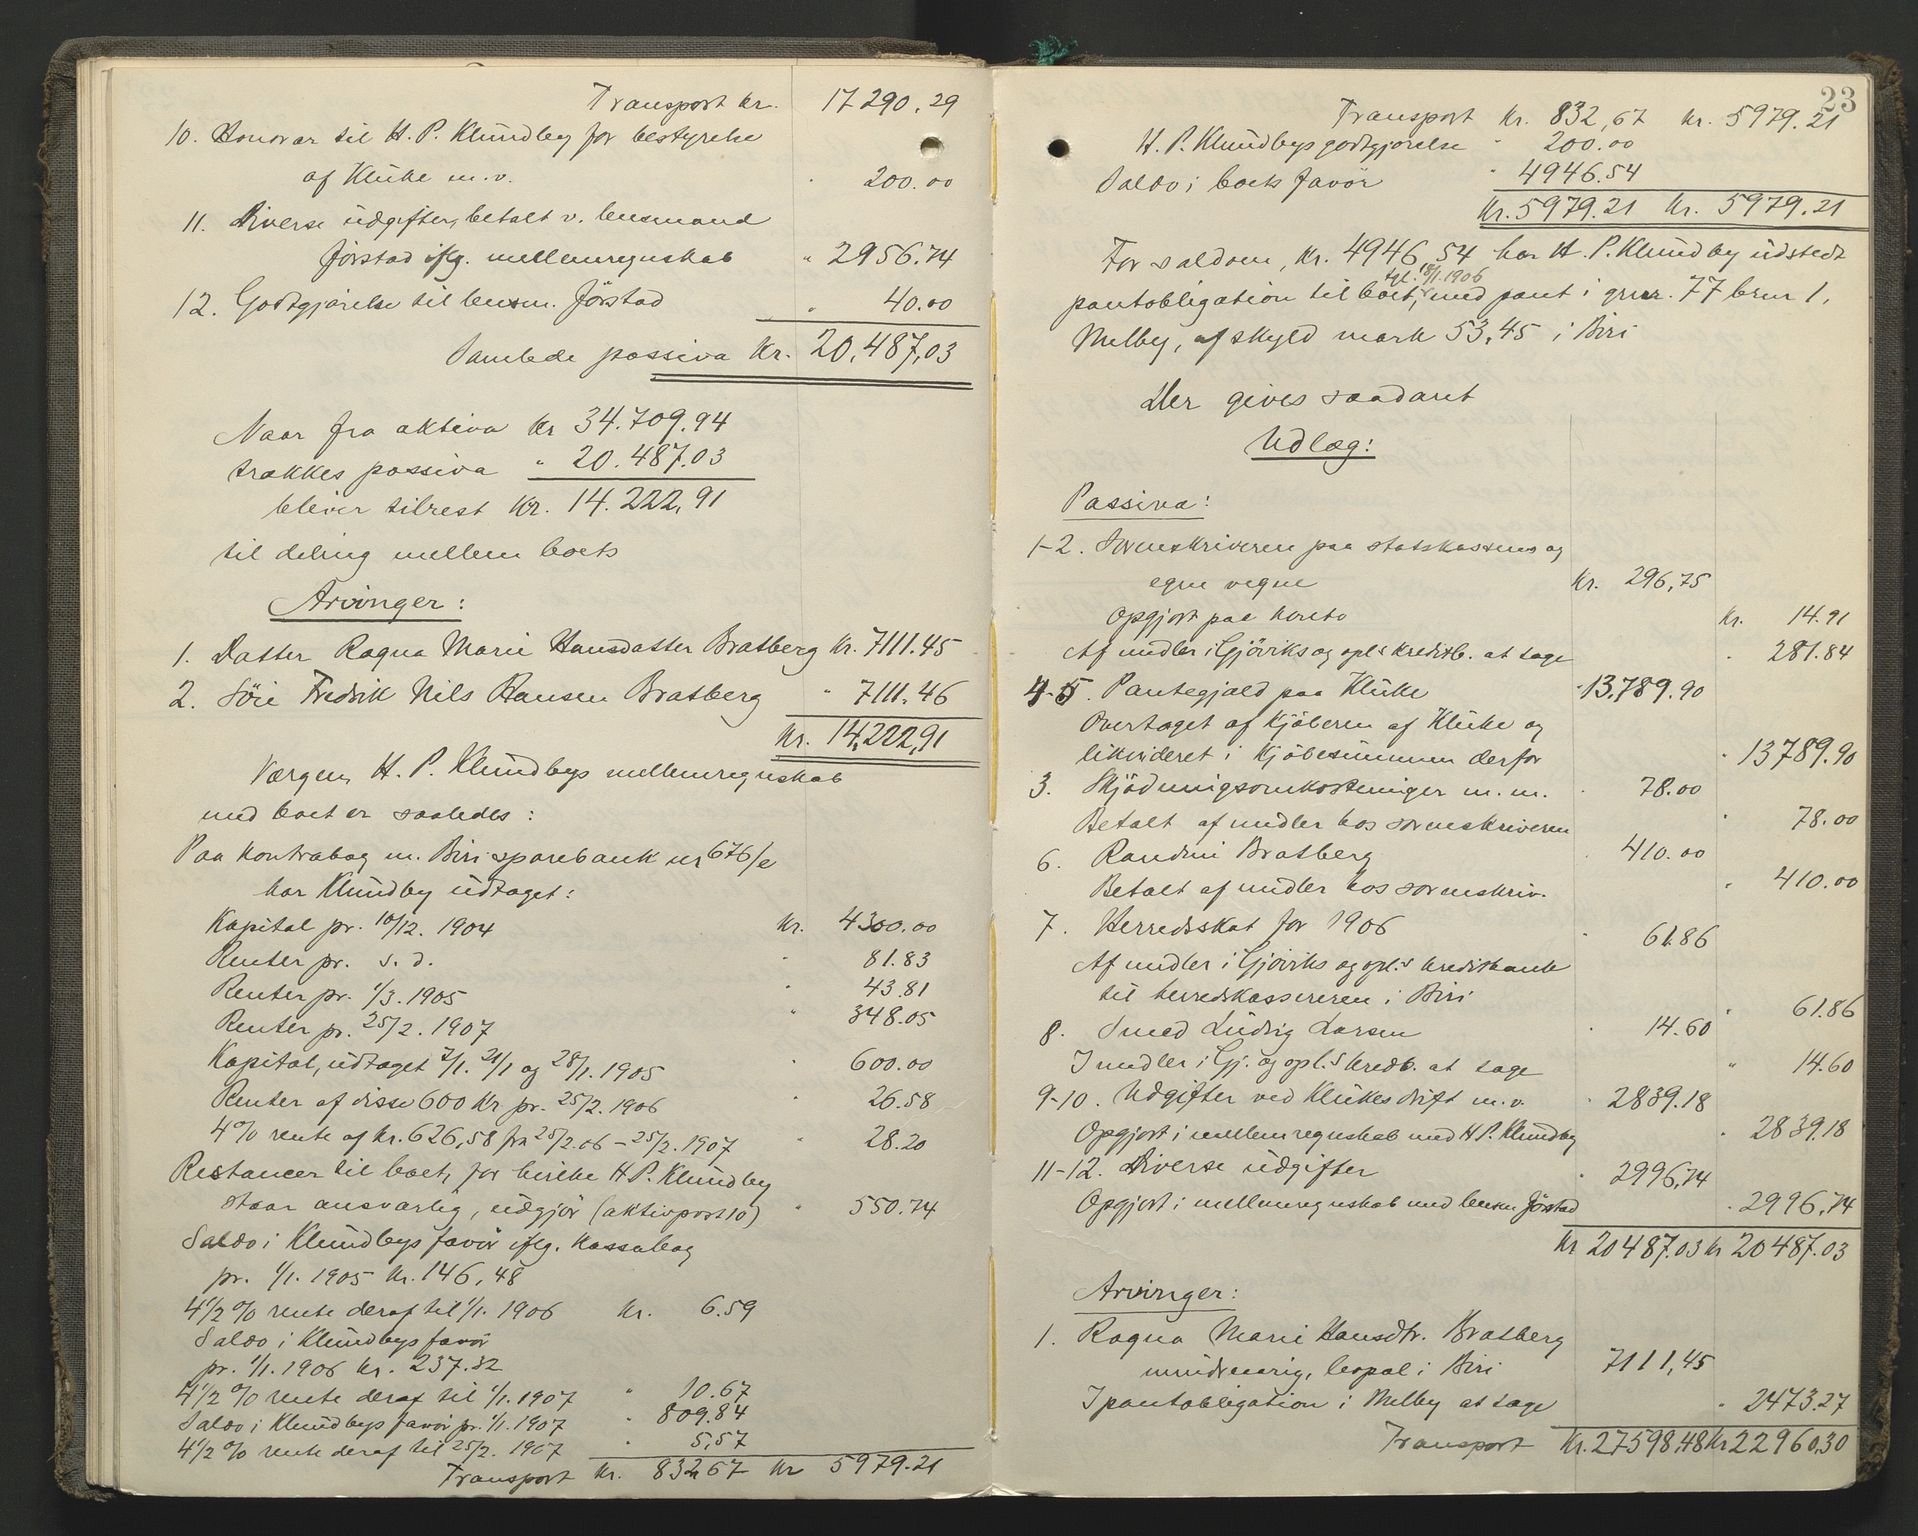 Transport kr. 17 290.29
10. Honorar til H. P. Klundby for bestyrelse
af Klüke m.v. " 200.00
11. Diverse udgifter, betalt v. lensmand
Jörstad iflg. mellemregnskab " 2956.74
12. Godtgjörelse til lensm. Jörstad " 40.00
Samlede passiva Kr. 20,487,03
Naar fra aktiva Kr 34.709.94
trækkes passiva " 20.487.03
bliver tilrest Kr. 14.222,91
til deling mellem boets
Arvinger:
1. Datter Ragna Marie Hansdatter Bratberg Kr. 7111.45
2. Sön Fredrik Nils Hansen Bratberg " 7111.46
Kr. 14,222,91
Værgen, H. P. Klundbys mellemregnskab
med boet er saaledes:
Paa Kontrabog m. Biri sparebank nr 676/e
har Klundby udtaget:
Kapital pr. 10/12. 1904 Kr. 4300.00
Renter pr. s. d. " 81.83
Renter pr. 1/3. 1905 " 43.81
Renter pr. 25/2. 1907 " 348.05
Kapital, udtaget 7/1. 21/1 og 28/1. 1905 " 600.00
Renter af disse 600 Kr pr. 25/2. 1906 " 26.58
4% rente af Kr. 626,58 fra 25/2.06 - 25/2. 1907 " 28.20
Restancer til boet, for hvilke H P. Klundby
staar ansvarlig, udgjör (aktivpost 10) " 550.74
Saldo i Klundbys favör iflg. Kassabog
pr. 1/1. 1905 Kr. 146,48
4 1/2 % rente deraf til 1/1. 1906 Kr. 6.59
Saldo i Klundbys favör
pr. 1/1. 1906 Kr. 237.32
4 1/2 % rente deraf til 1/1. 1907 " 10.67
Saldo i Klundbys favör pr. 1/1. 1907 " 809.84
4 1/2 % rente deraf til 25/2. 1907 " 5,57
Transport Kr. 832,67 Kr 5979.21
23
Transport Kr. 832,67 Kr. 5979.21
H. P. Klundbys godtgjörelse " 200.00
Saldo i boets favör " 4946.54
Kr. 5979.21 Kr. 5979.21
For saldoen, Kr. 4946,54 har H. P. Klundby udstedt
tgl. 18/1.1906
pantobligation til boet, med pant i gnr. 77 brnr 1,
Melby, af skyld mark 53,45 i Biri
Der gives saadant
Udlæg:
Passiva:
1-2. Sorenskriveren paa statskassens og
egne vegne Kr. 296,75
Opgjort paa konto Kr. 14.91
Af midler i Gjöviks og opl.s kreditb. at tage " 281.84
4-5. Pantegjæld paa Klüke " 13,789.90
Overtaget af Kjöberen af Klüke og
likvideret i Kjöbesummen derfor " 13789.90
3. Skjödningsomkostninger m. m. " 78.00
Betalt af midler hos sorenskriveren " 78.00
6. Randini Bratberg " 410.00
Betalt af midler hos sorenskriv. " 410.00
7. Herredsskat for 1906 " 61.86
Af midler i Gjöviks og opl.s kreditbank
til herredskassereren i Biri " 61.86
8. Smed Ludvig Larsen " 14.60
I midler i Gj. og opl.s kredb. at tage " 14.60
9-10. Udgifter ved Klükes drift m.v. " 2839.18
Opgjort i mellemregnskab med H P. Klundby " 2839.18
11-12. Diverse udgifter " 2996,74
Opgjort i mellemregnskab med lensm Jörstad " 2996,74
Kr 20487.03 Kr 20487.03
Arvinger:
1. Ragna Marie Hansdtr. Bratberg
mindreaarig, bopæl i Biri 7111,45
I pantobligation i Melby at tage " 2473.27
Transport Kr. 27598,48 Kr 22960,30